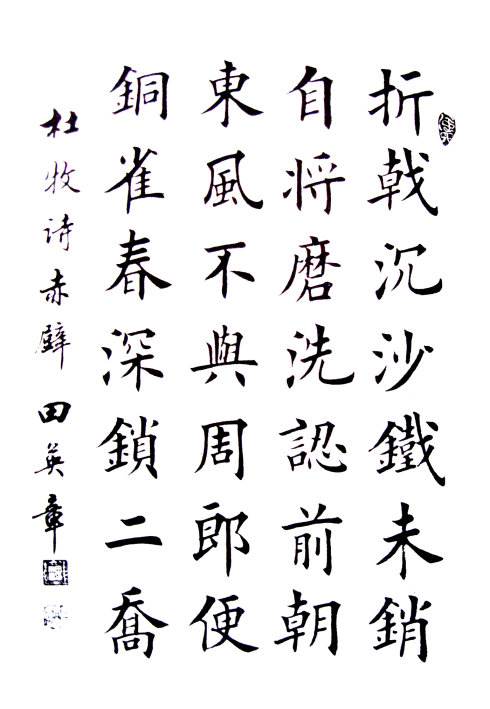 折戟沉沙鐵未銷
自将磨洗認前朝
東風不與周郎便
銅雀春深鎖二喬
杜牧诗赤壁 田英章